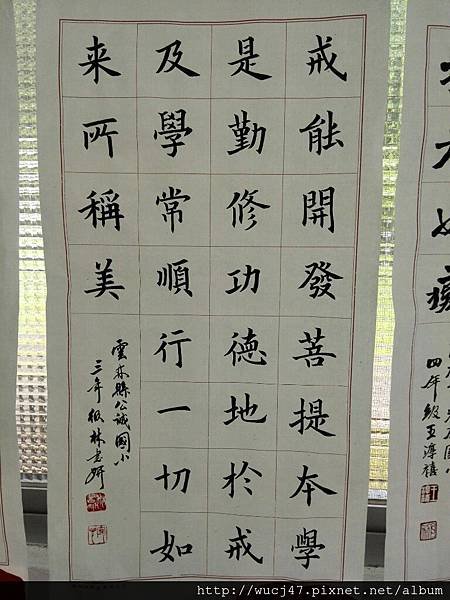 戒能開發菩提本學
是勤修功德地於戒
及學常順行一切如
来所稱美
雲林縣公誠國小
三年級林
四年級王淳禧
http://wucj47.pixnet.net/album